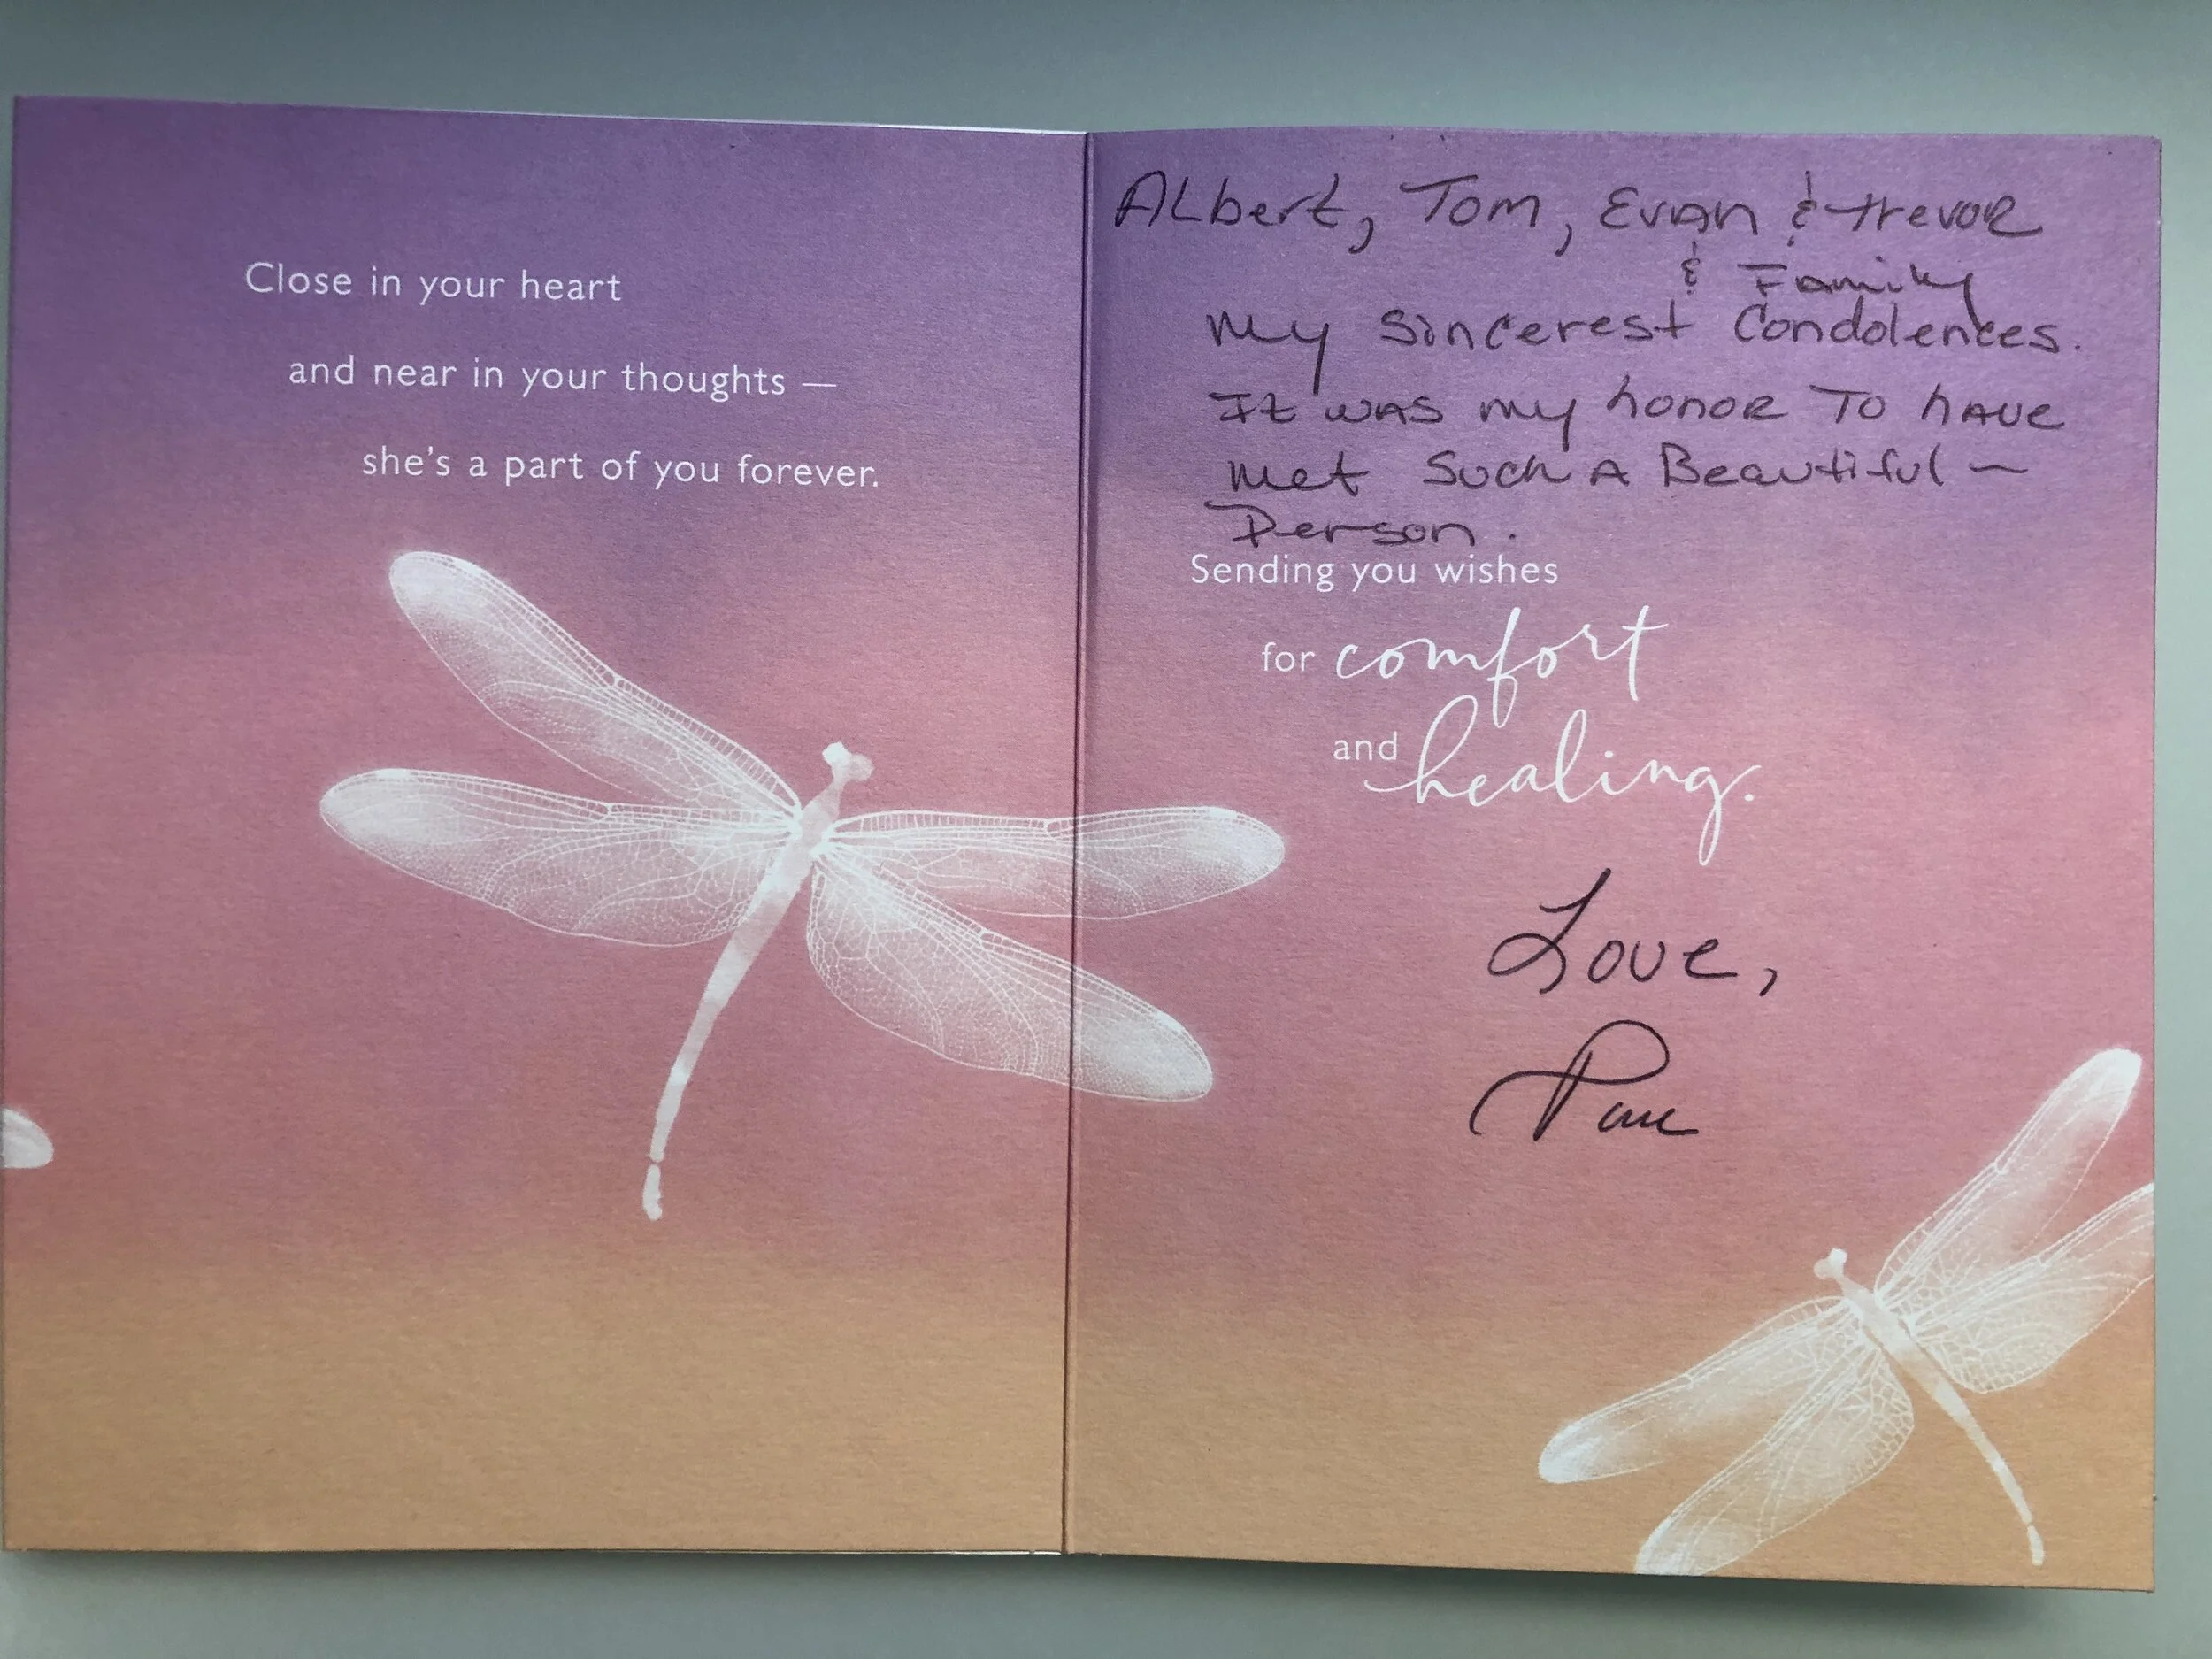 Close in your heart
and near in your thoughts —
she's a part of you forever.
ALbert, Tom, Evan & trevor
& Family
my sincerest Condolences.
It was my honor To have
met Such A Beautiful —
Person.
Sending you wishes
for comfort
and healing.
Love,